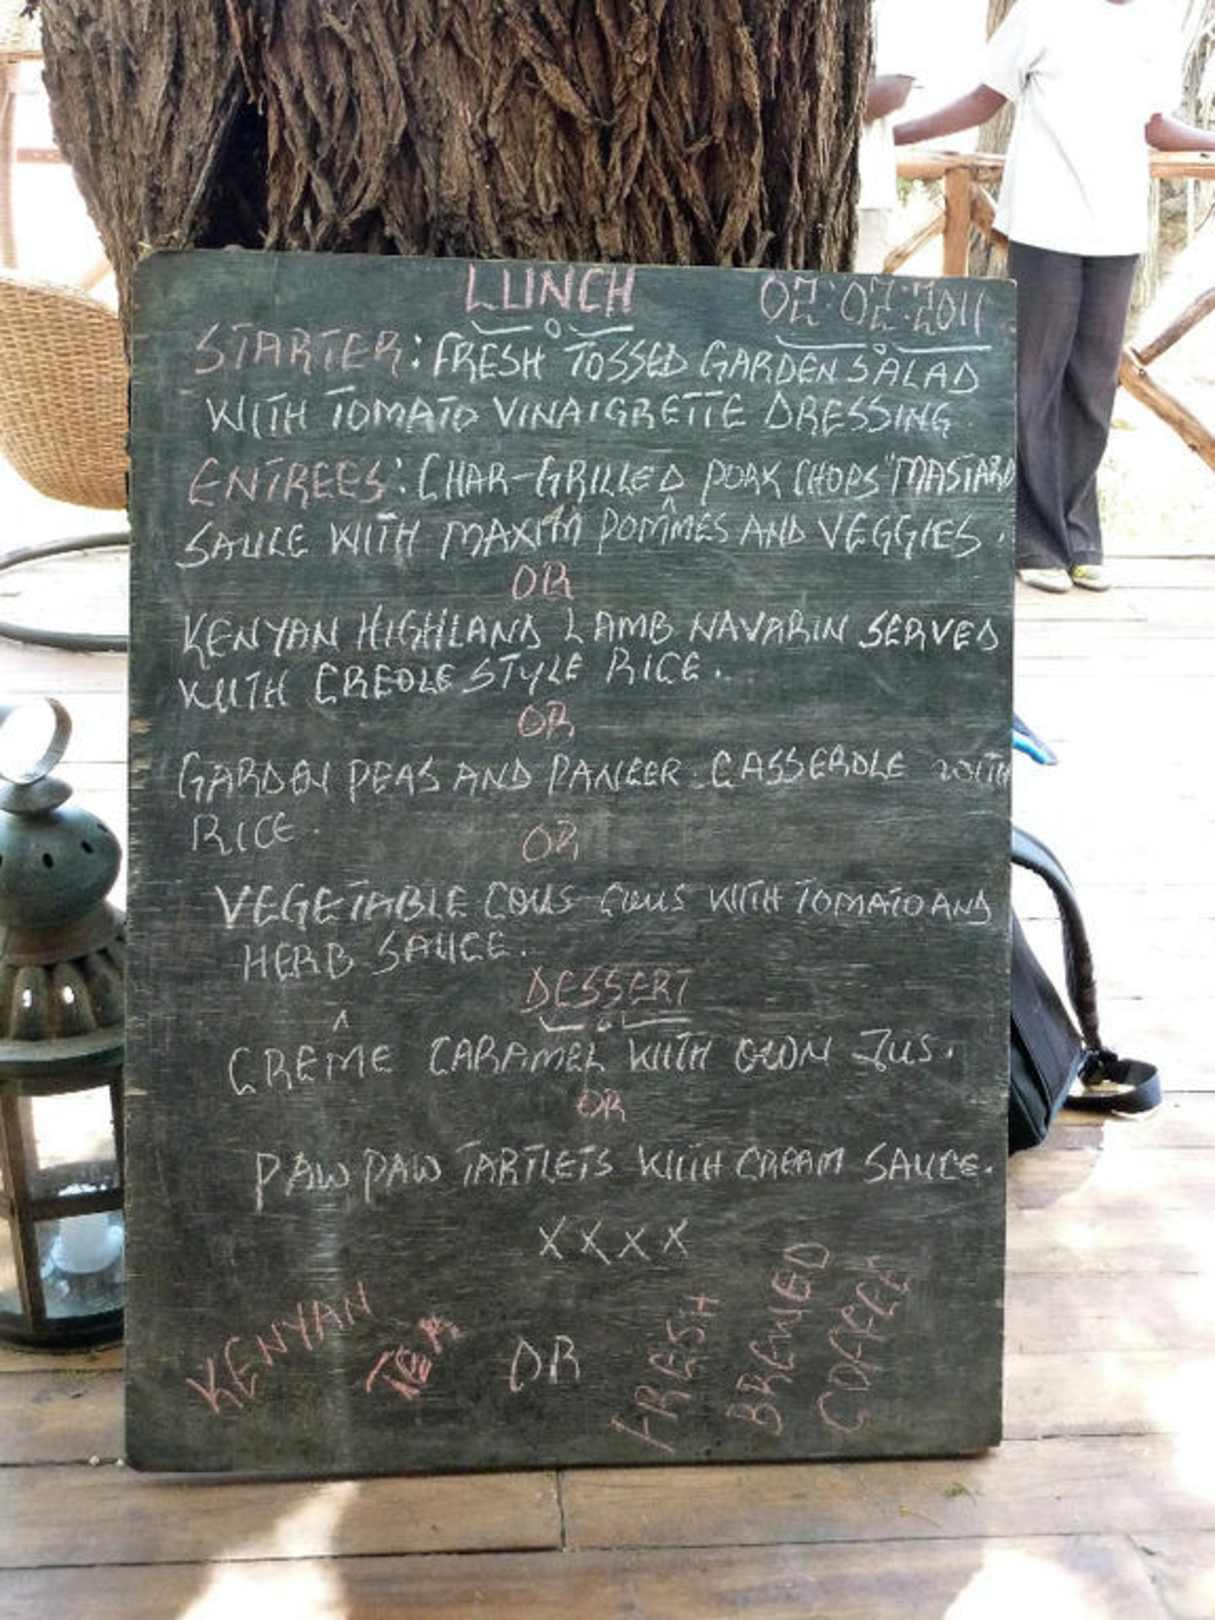 LUNCH 02·02·2011
STARTER: FRESH TOSSED GARDEN SALAD
WITH TOMATO VINAIGRETTE DRESSING.
ENTREES: CHAR-GRILLED PORK CHOPS "MASTARD
SAUCE WITH MAXIM POMMÊS AND VEGGIES.
OR
KENYAN HIGHLAND LAMB NAVARIN SERVED
WITH CREOLE STYLE RICE.
OR
GARDEN PEAS AND PANEER CASSEROLE WITH
RICE.
OR
VEGETABLE COUS COUS WITH TOMATO AND
HERB SAUCE.
DESSERT
CRÊME CARAMEL WITH OWN JUS.
OR
PAW PAW TARTLETS WITH CREAM SAUCE.
XXXX
KENYAN TEA OR FRESH BREWED COFFEE